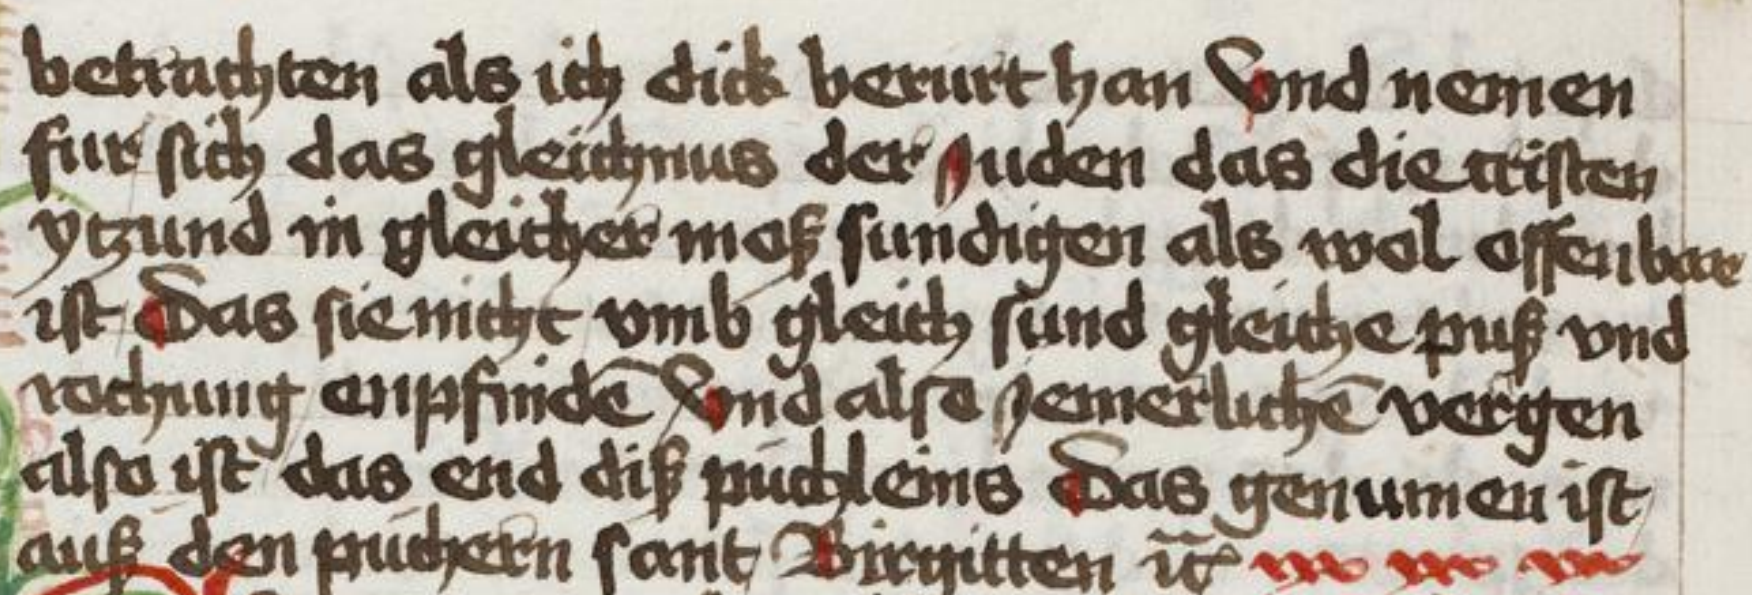 betrachten als ich dick berurt han Vnd nemen
fur sich das gleichnus der Juden das die cristen
ytzund in gleicher moß sundigen als wol offenbare
ist Das sie nicht vmb gleich sund gleiche puß vnd
rochung enpfindē Vnd also Jemerlichē vergen
also ist das end diß puchleins Das genumen ist
auß den puchern sant Birgitten